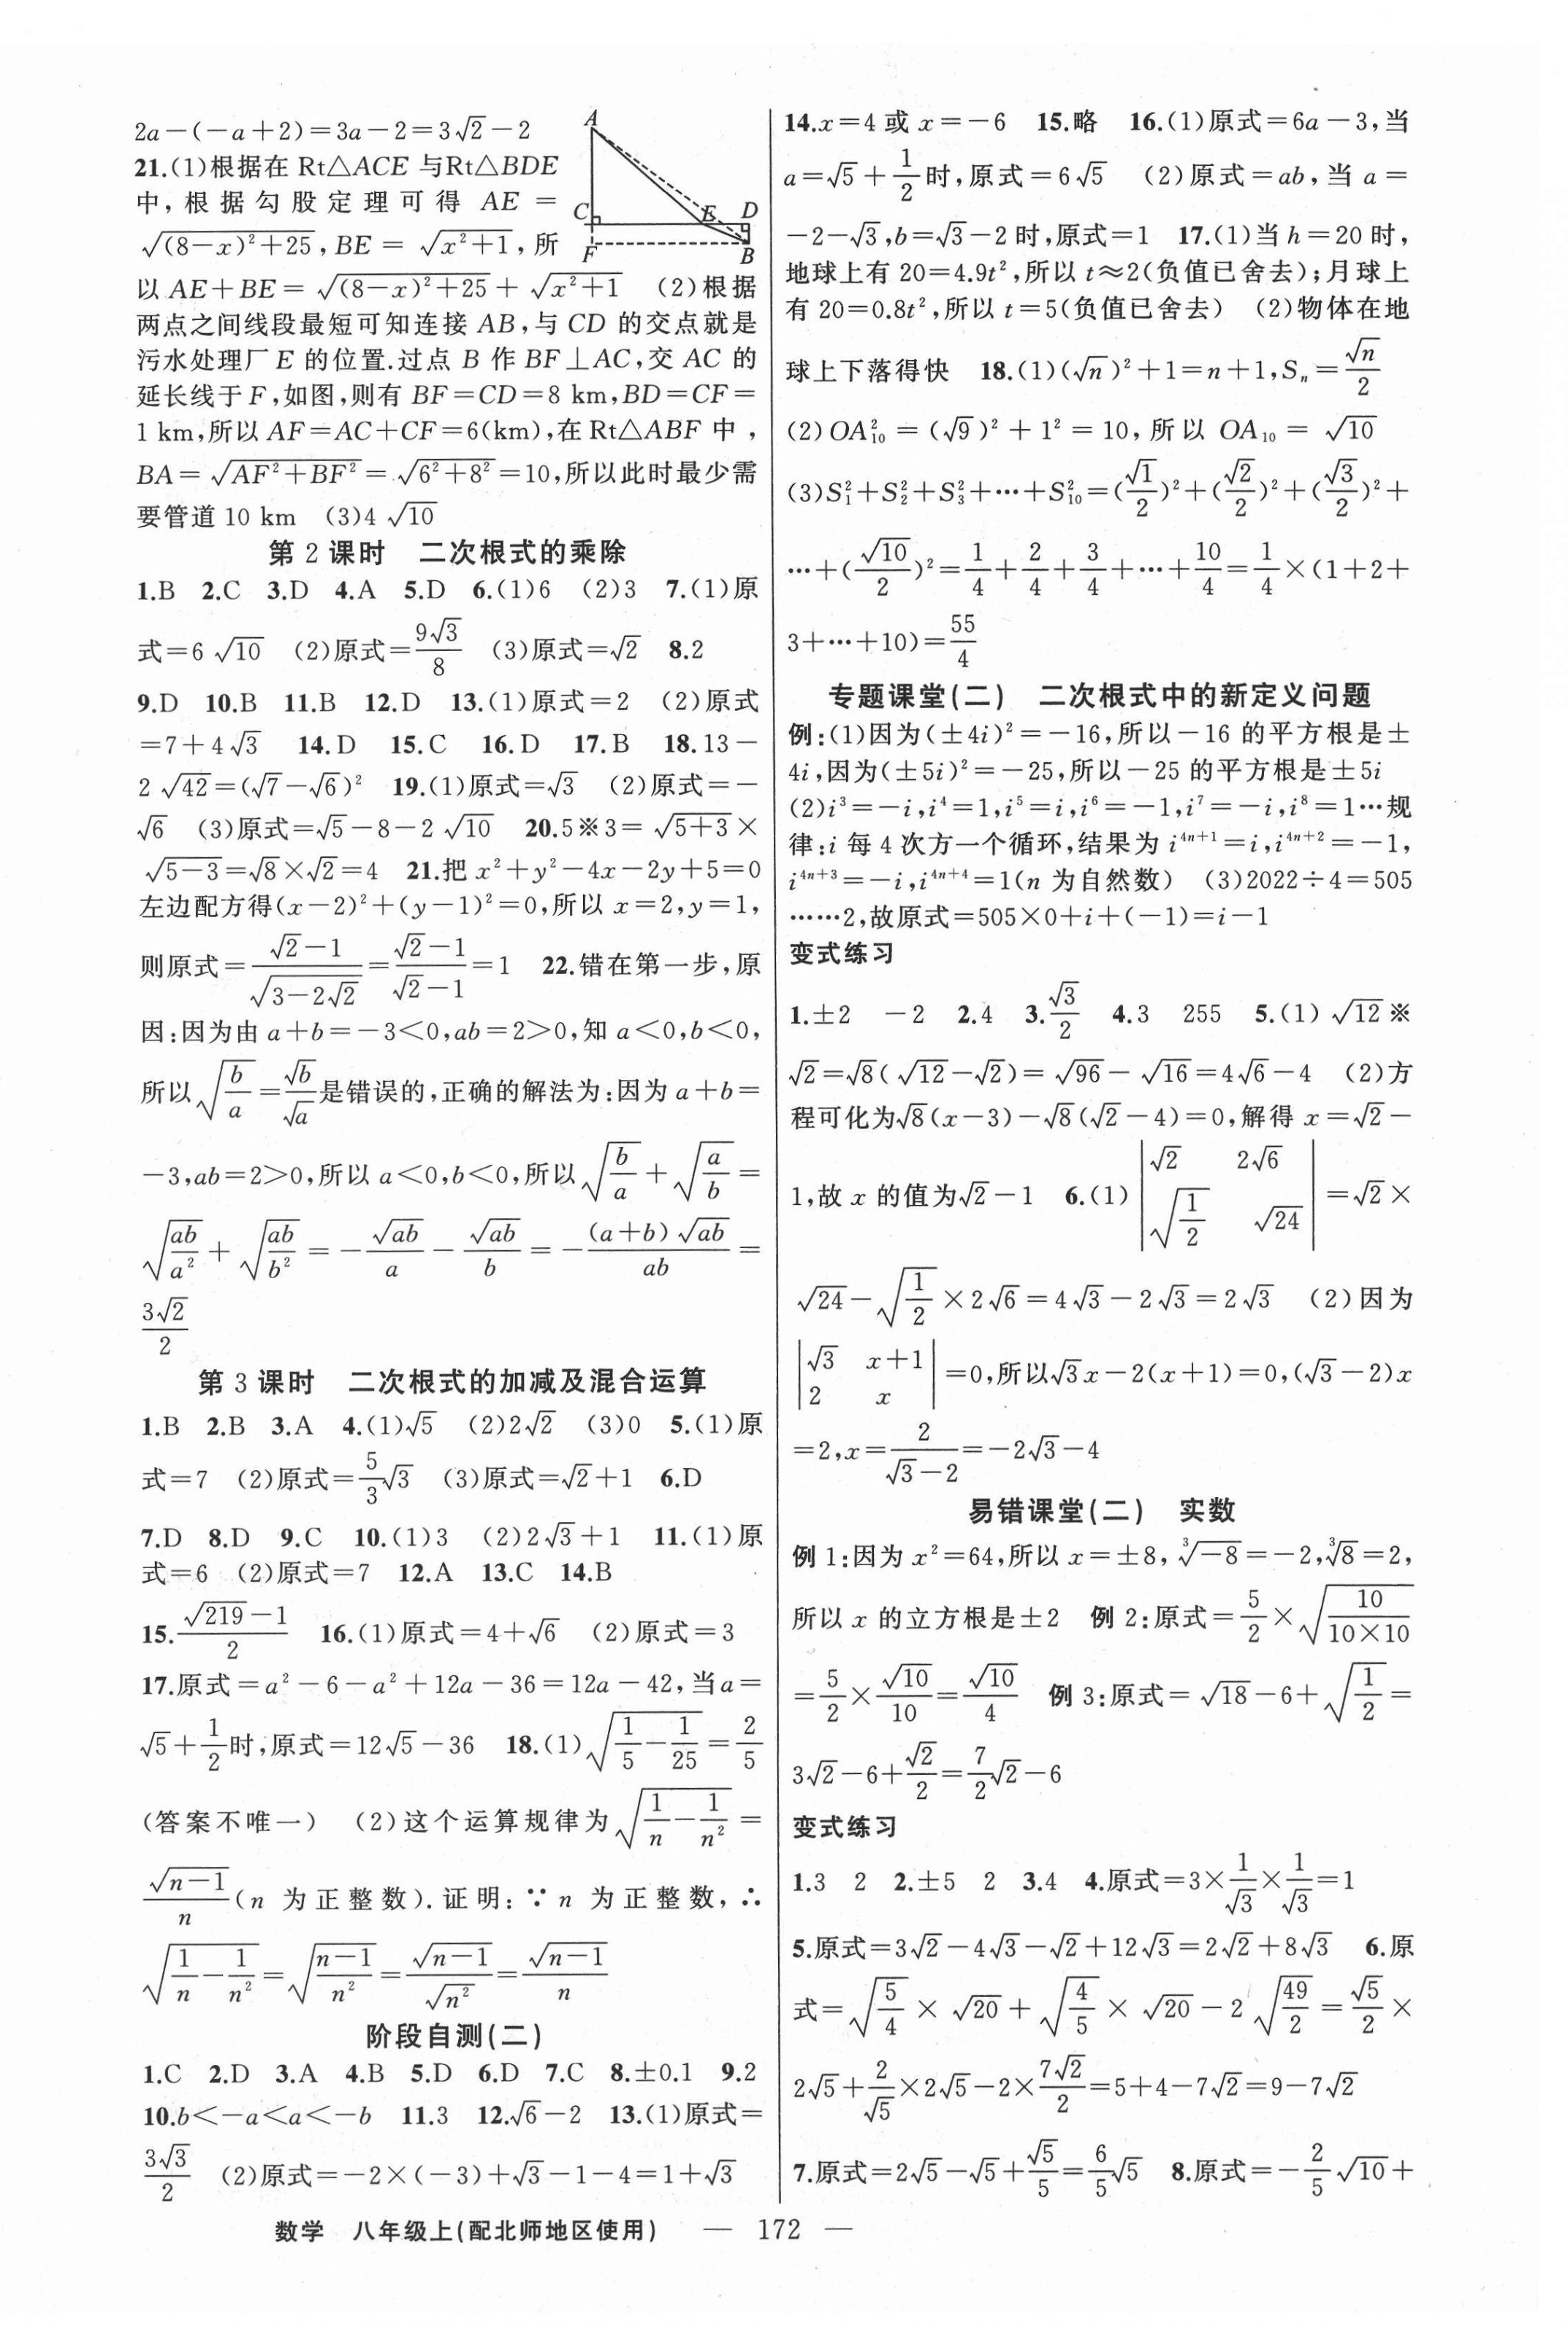 2a－(－a＋2)＝3a－2＝3√2－2
21.(1)根据在 Rt△ACE 与Rt△BDE
中，根据勾股定理可得 AE＝
√((8－x)²＋25)，BE＝√(x²＋1)，所
A
C
E
D
F
B
以 AE＋BE＝√((8－x)²＋25)＋√(x²＋1) (2)根据
两点之间线段最短可知连接 AB，与 CD 的交点就是
污水处理厂 E 的位置.过点 B 作 BF⊥AC，交 AC 的
延长线于 F，如图，则有 BF＝CD＝8 km，BD＝CF＝
1 km，所以 AF＝AC＋CF＝6(km)，在 Rt△ABF 中，
BA＝√(AF²＋BF²)＝√(6²＋8²)＝10，所以此时最少需
要管道 10 km (3)4√10
第 2 课时 二次根式的乘除
1.B 2.C 3.D 4.A 5.D 6.(1)6 (2)3 7.(1)原
式＝6√10 (2)原式＝9√3/8 (3)原式＝√2 8.2
9.D 10.B 11.B 12.D 13.(1)原式＝2 (2)原式
＝7＋4√3 14.D 15.C 16.D 17.B 18.13－
2√42＝(√7－√6)² 19.(1)原式＝√3 (2)原式＝－
√6 (3)原式＝√5－8－2√10 20.5※3＝√(5＋3)×
√(5－3)＝√8×√2＝4 21.把 x²＋y²－4x－2y＋5＝0
左边配方得(x－2)²＋(y－1)²＝0，所以 x＝2，y＝1，
则原式＝(√2－1)/√(3－2√2)＝(√2－1)/(√2－1)＝1 22.错在第一步，原
因：因为由 a＋b＝－3＜0，ab＝2＞0，知 a＜0，b＜0，
所以√(b/a)＝√b/√a是错误的，正确的解法为：因为 a＋b＝
－3，ab＝2＞0，所以 a＜0，b＜0，所以√(b/a)＋√(a/b)＝
√(ab/a²)＋√(ab/b²)＝－√ab/a－√ab/b＝－(a＋b)√ab/ab＝
3√2/2
第 3 课时 二次根式的加减及混合运算
1.B 2.B 3.A 4.(1)√5 (2)2√2 (3)0 5.(1)原
式＝7 (2)原式＝5/3√3 (3)原式＝√2＋1 6.D
7.D 8.D 9.C 10.(1)3 (2)2√3＋1 11.(1)原
式＝6 (2)原式＝7 12.A 13.C 14.B
15.(√219－1)/2 16.(1)原式＝4＋√6 (2)原式＝3
17.原式＝a²－6－a²＋12a－36＝12a－42，当 a＝
√5＋1/2时，原式＝12√5－36 18.(1)√(1/5－1/25)＝2/5
(答案不唯一) (2)这个运算规律为√(1/n－1/n²)＝
√(n－1)/n(n 为正整数).证明：∵n 为正整数，∴
√(1/n－1/n²)＝√((n－1)/n²)＝√(n－1)/√(n²)＝√(n－1)/n
阶段自测(二)
1.C 2.D 3.A 4.B 5.D 6.D 7.C 8.±0.1 9.2
10.b＜－a＜a＜－b 11.3 12.√6－2 13.(1)原式＝
3√3/2 (2)原式＝－2×(－3)＋√3－1－4＝1＋√3
14.x＝4 或 x＝－6 15.略 16.(1)原式＝6a－3，当
a＝√5＋1/2时，原式＝6√5 (2)原式＝ab，当 a＝
－2－√3，b＝√3－2 时，原式＝1 17.(1)当 h＝20 时，
地球上有 20＝4.9t²，所以 t≈2(负值已舍去)；月球上
有 20＝0.8t²，所以 t＝5(负值已舍去) (2)物体在地
球上下落得快 18.(1)(√n)²＋1＝n＋1，Sₙ＝√n/2
(2)OA₁₀²＝(√9)²＋1²＝10，所以 OA₁₀＝√10
(3)S₁²＋S₂²＋S₃²＋…＋S₁₀²＝(√1/2)²＋(√2/2)²＋(√3/2)²＋
…＋(√10/2)²＝1/4＋2/4＋3/4＋…＋10/4＝1/4×(1＋2＋
3＋…＋10)＝55/4
专题课堂(二) 二次根式中的新定义问题
例：(1)因为(±4i)²＝－16，所以－16 的平方根是±
4i，因为(±5i)²＝－25，所以－25 的平方根是±5i
(2)i³＝－i，i⁴＝1，i⁵＝i，i⁶＝－1，i⁷＝－i，i⁸＝1…规
律：i 每 4 次方一个循环，结果为 i⁴ⁿ⁺¹＝i，i⁴ⁿ⁺²＝－1，
i⁴ⁿ⁺³＝－i，i⁴ⁿ⁺⁴＝1(n 为自然数) (3)2022÷4＝505
……2，故原式＝505×0＋i＋(－1)＝i－1
变式练习
1.±2 －2 2.4 3.√3/2 4.3 255 5.(1)√12※
√2＝√8(√12－√2)＝√96－√16＝4√6－4 (2)方
程可化为√8(x－3)－√8(√2－4)＝0，解得 x＝√2－
1，故 x 的值为√2－1 6.(1)|√2 2√6; √(1/2) √24|＝√2×
√24－√(1/2)×2√6＝4√3－2√3＝2√3 (2)因为
|√3 x＋1; 2 x|＝0，所以√3x－2(x＋1)＝0，(√3－2)x
＝2，x＝2/(√3－2)＝－2√3－4
易错课堂(二) 实数
例 1：因为 x²＝64，所以 x＝±8，∛－8＝－2，∛8＝2，
所以 x 的立方根是±2 例 2：原式＝5/2×√(10/(10×10))
＝5/2×√10/10＝√10/4 例 3：原式＝√18－6＋√(1/2)＝
3√2－6＋√2/2＝7/2√2－6
变式练习
1.3 2 2.±5 2 3.4 4.原式＝3×1/√3×1/√3＝1
5.原式＝3√2－4√3－√2＋12√3＝2√2＋8√3 6.原
式＝√(5/4)×√20＋√(4/5)×√20－2√(49/2)＝√5/2×
2√5＋2/√5×2√5－2×7√2/2＝5＋4－7√2＝9－7√2
7.原式＝2√5－√5＋√5/5＝6/5√5 8.原式＝－2/5√10＋
数学 八年级上(配北师地区使用) — 172 —